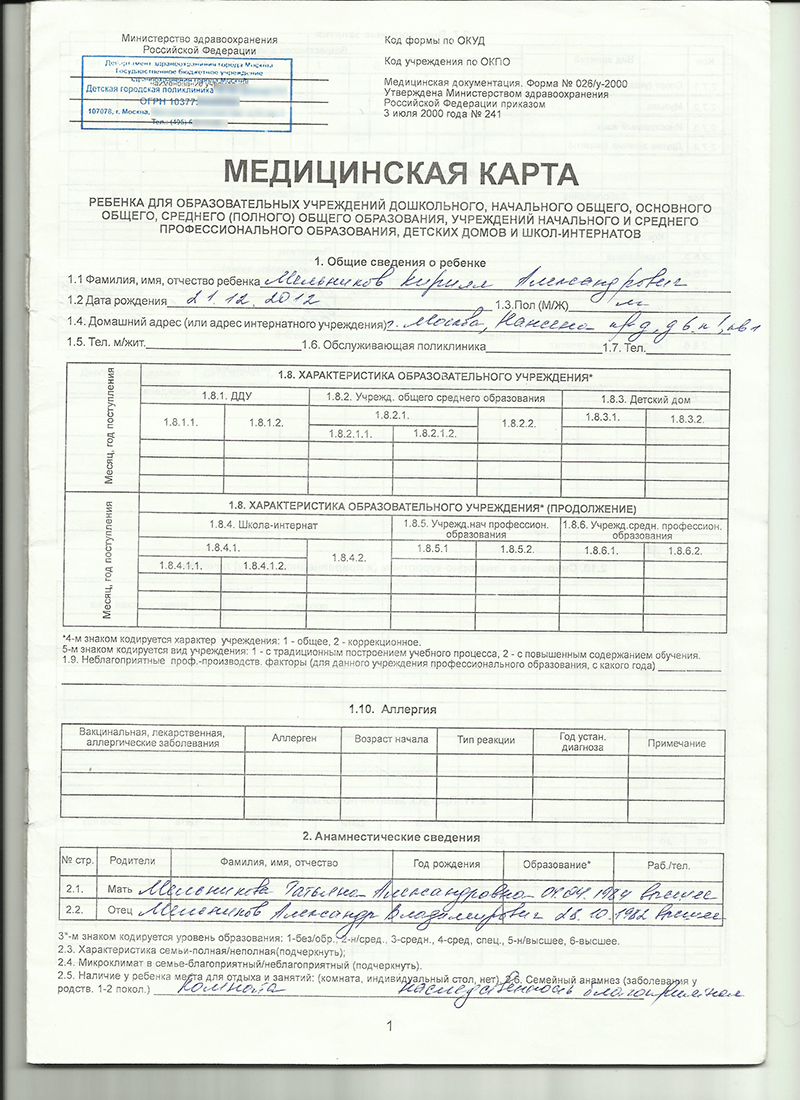 Министерство здравоохранения
Российской Федерации
Департамент здравоохранения города Москвы
Государственное бюджетное учреждение
Детская городская поликлиника
ОГРН 10377
107078, г. Москва,
Тел.: (495)
Код формы по ОКУД
Код учреждения по ОКПО
Медицинская документация. Форма № 026/у-2000
Утверждена Министерством здравоохранения
Российской Федерации приказом
3 июля 2000 года № 241
МЕДИЦИНСКАЯ КАРТА
РЕБЕНКА ДЛЯ ОБРАЗОВАТЕЛЬНЫХ УЧРЕЖДЕНИЙ ДОШКОЛЬНОГО, НАЧАЛЬНОГО ОБЩЕГО, ОСНОВНОГО
ОБЩЕГО, СРЕДНЕГО (ПОЛНОГО) ОБЩЕГО ОБРАЗОВАНИЯ, УЧРЕЖДЕНИЙ НАЧАЛЬНОГО И СРЕДНЕГО
ПРОФЕССИОНАЛЬНОГО ОБРАЗОВАНИЯ, ДЕТСКИХ ДОМОВ И ШКОЛ-ИНТЕРНАТОВ
1. Общие сведения о ребенке
1.1 Фамилия, имя, отчество ребенка Мельников Кирилл Александрович
1.2 Дата рождения 21.12.2012 1.3.Пол (М/Ж) м
1.4. Домашний адрес (или адрес интернатного учреждения) г. Москва, Нансена пр-д, д 6, к 1, кв 1
1.5. Тел. м/жит. 1.6. Обслуживающая поликлиника 1.7. Тел.
Месяц, год поступления
1.8. ХАРАКТЕРИСТИКА ОБРАЗОВАТЕЛЬНОГО УЧРЕЖДЕНИЯ*
1.8.1. ДДУ 1.8.2. Учрежд. общего среднего образования 1.8.3. Детский дом
1.8.1.1. 1.8.1.2. 1.8.2.1. 1.8.2.2. 1.8.3.1. 1.8.3.2.
1.8.2.1.1. 1.8.2.1.2.
Месяц, год поступления
1.8. ХАРАКТЕРИСТИКА ОБРАЗОВАТЕЛЬНОГО УЧРЕЖДЕНИЯ* (ПРОДОЛЖЕНИЕ)
1.8.4. Школа-интернат 1.8.5. Учрежд.нач профессион. образования 1.8.6. Учрежд.средн. профессион. образования
1.8.4.1. 1.8.4.2. 1.8.5.1 1.8.5.2. 1.8.6.1. 1.8.6.2.
1.8.4.1.1. 1.8.4.1.2.
*4-м знаком кодируется характер учреждения: 1 - общее, 2 - коррекционное.
5-м знаком кодируется вид учреждения: 1 - с традиционным построением учебного процесса, 2 - с повышенным содержанием обучения.
1.9. Неблагоприятные проф.-производств. факторы (для данного учреждения профессионального образования, с какого года)
1.10. Аллергия
Вакцинальная, лекарственная, аллергические заболевания Аллерген Возраст начала Тип реакции Год устан. диагноза Примечание
2. Анамнестические сведения
№ стр. Родители Фамилия, имя, отчество Год рождения Образование* Раб./тел.
2.1. Мать Мельникова Татьяна Александровна 04.04.1984 высшее
2.2. Отец Мельников Александр Владимирович 28.10.1982 высшее
3*-м знаком кодируется уровень образования: 1-без/обр., 2-н/сред., 3-средн., 4-сред, спец., 5-н/высшее, 6-высшее.
2.3. Характеристика семьи-полная/неполная(подчеркнуть);
2.4. Микроклимат в семье-благоприятный/неблагоприятный (подчеркнуть).
2.5. Наличие у ребенка места для отдыха и занятий: (комната, индивидуальный стол, нет). 2.6. Семейный анамнез (заболевания у
родств. 1-2 покол.) комната наследственность благоприятная
1